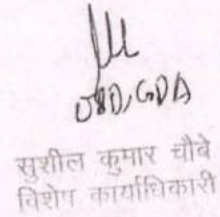 OSD, GDA
सुशील कुमार चौबे
विशेष कार्याधिकारी